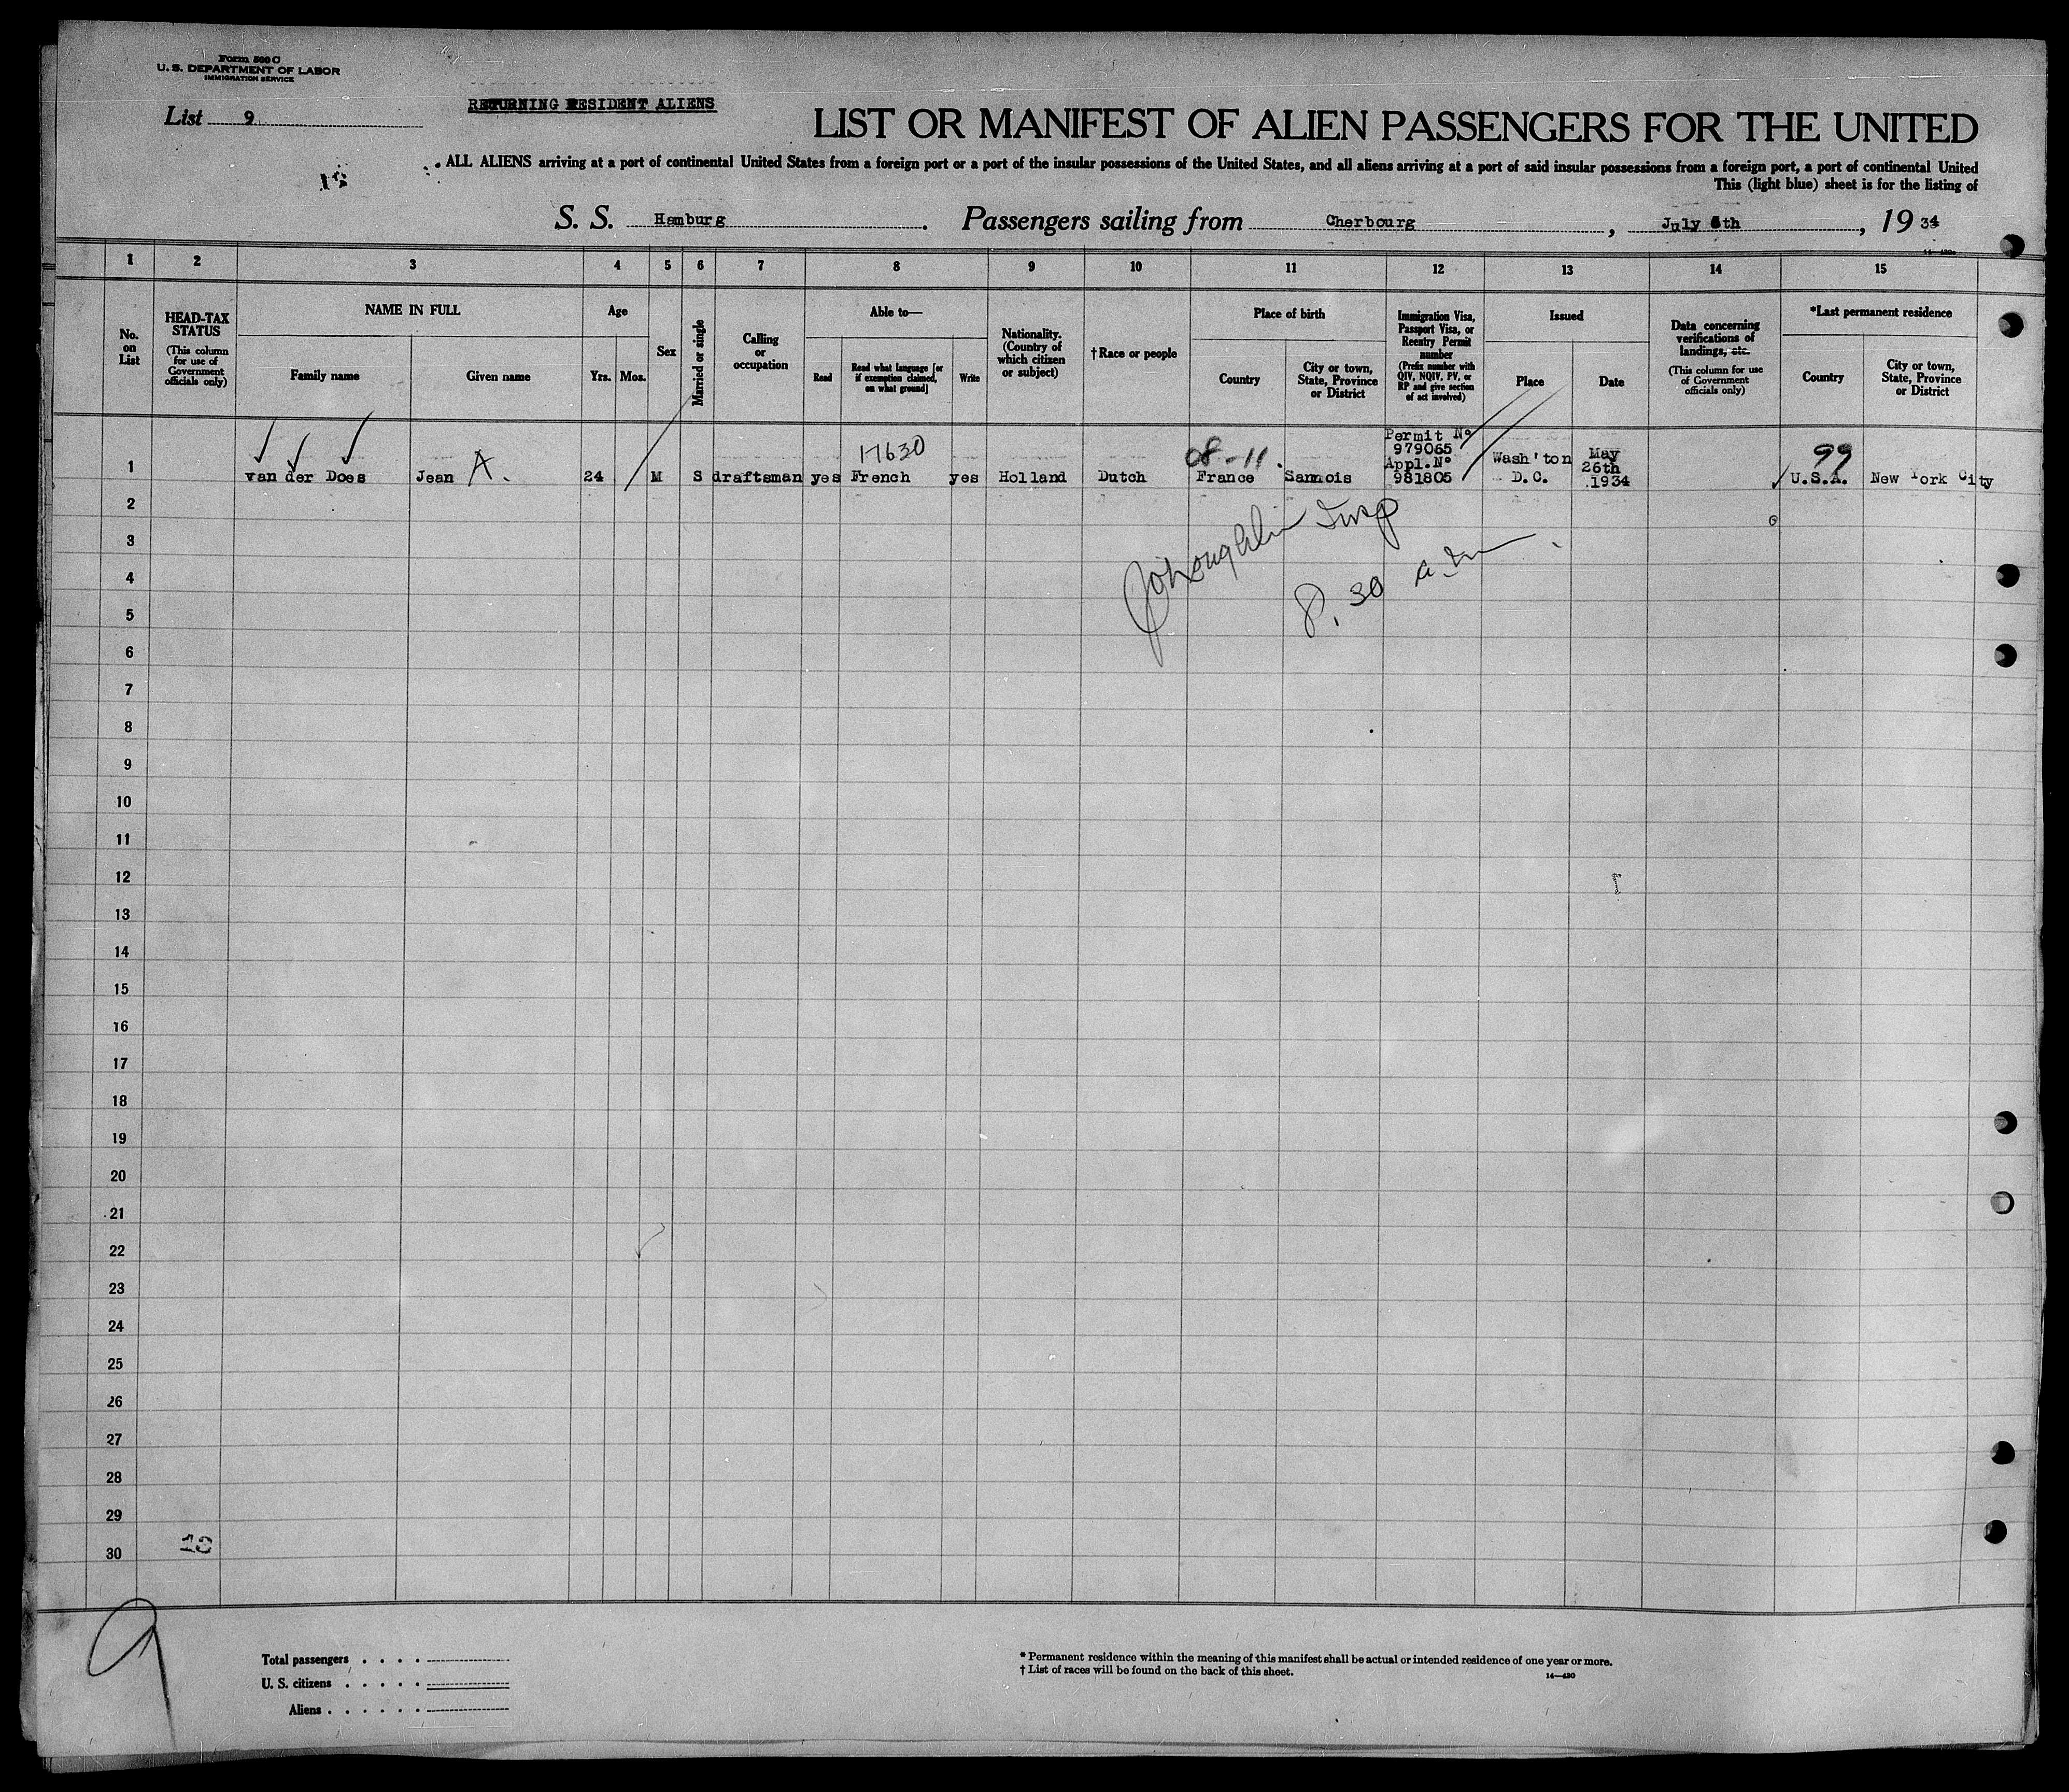 Form 500 C
U. S. DEPARTMENT OF LABOR
IMMIGRATION SERVICE
List 9
RETURNING RESIDENT ALIENS
LIST OR MANIFEST OF ALIEN PASSENGERS FOR THE UNITED
ALL ALIENS arriving at a port of continental United States from a foreign port or a port of the insular possessions of the United States, and all aliens arriving at a port of said insular possessions from a foreign port, a port of continental United
This (light blue) sheet is for the listing of
S. S. Hamburg. Passengers sailing from Cherbourg, July 6th, 1934
1 2 3 4 5 6 7 8 9 10 11 12 13 14 15
No. on List
HEAD-TAX STATUS
(This column for use of Government officials only)
NAME IN FULL
Family name
Given name
Age
Yrs.
Mos.
Sex
Married or single
Calling or occupation
Able to—
Read
Read what language [or if exemption claimed, on what ground]
Write
Nationality. (Country of which citizen or subject)
†Race or people
Place of birth
Country
City or town, State, Province or District
Immigration Visa, Passport Visa, or Reentry Permit number
(Prefix number with QIV, NQIV, PV, or RP and give section of act involved)
Issued
Place
Date
Data concerning verifications of landings, etc.
(This column for use of Government officials only)
*Last permanent residence
Country
City or town, State, Province or District
17630
08-11.
99
1 van der Does Jean A. 24 M S draftsman yes French yes Holland Dutch France Sannois
Permit No
979065
Appl. No
981805
Wash'ton
D.C.
May
26th
1934
U.S.A. New York City
2
3
4
5
6
7
8
9
10
11
12
13
14
15
16
17
18
19
20
21
22
23
24
25
26
27
28
29
30
Insp
8.30 a.m.
9
Total passengers
U. S. citizens
Aliens
* Permanent residence within the meaning of this manifest shall be actual or intended residence of one year or more.
† List of races will be found on the back of this sheet.
14—430